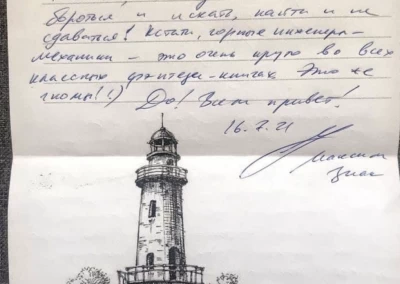 бороться и искать, найти и не
сдаваться! Кстати, горные инженеры-
механики – это очень круто во всех
классных фэнтези-книгах. Это же
гномы!!:) Да! Всем привет!
16.7.21
Максим